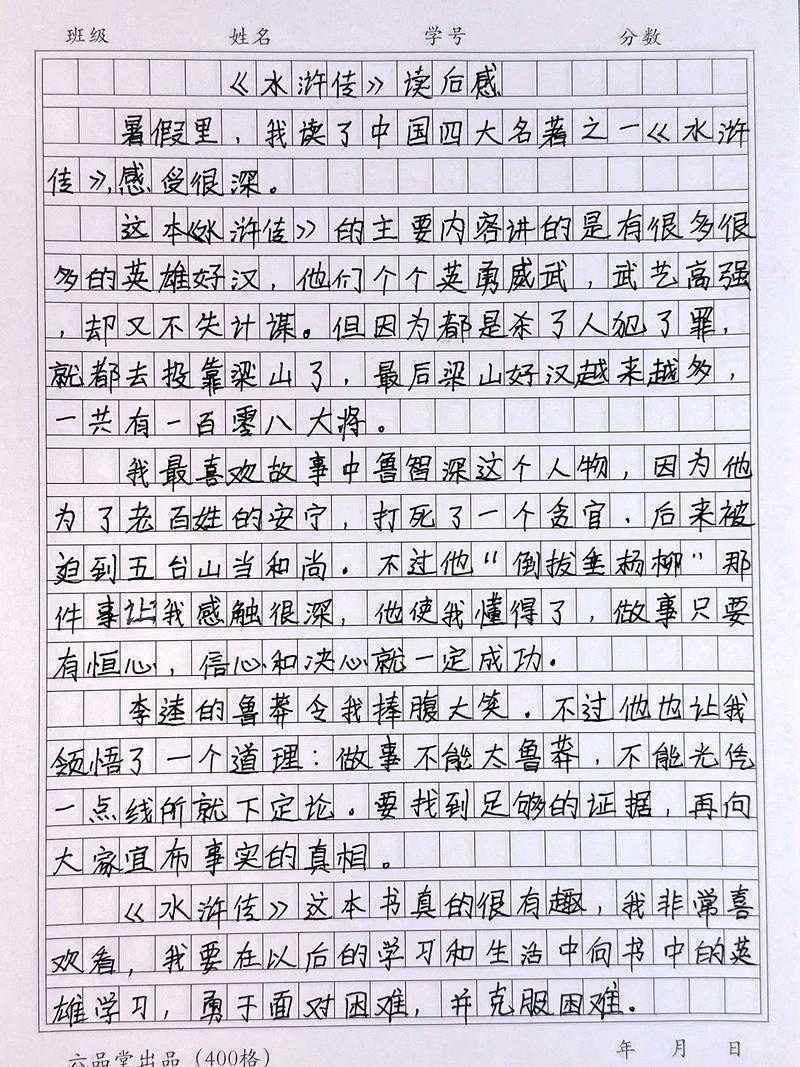 班级 姓名 学号 分数
《水浒传》读后感
暑假里，我读了中国四大名著之一《水浒
传》，感受很深。
这本《水浒传》的主要内容讲的是有很多很
多的英雄好汉，他们个个英勇威武，武艺高强
，却又不失计谋。但因为都是杀了人犯了罪，
就都去投靠梁山了，最后梁山好汉越来越多，
一共有一百零八大将。
我最喜欢故事中鲁智深这个人物，因为他
为了老百姓的安宁，打死了一个贪官．后来被
迫到五台山当和尚．不过他“倒拔垂杨柳”那
件事让我感触很深，他使我懂得了，做事只要
有恒心，信心和决心就一定成功．
李逵的鲁莽令我捧腹大笑．不过他也让我
领悟了一个道理：做事不能太鲁莽，不能光凭
一点线所就下定论．要找到足够的证据，再向
大家宜布事实的真相。
《水浒传》这本书真的很有趣，我非常喜
欢看，我要在以后的学习和生活中向书中的英
雄学习，勇于面对困难，并克服困难．
六品堂出品（400格） 年 月 日